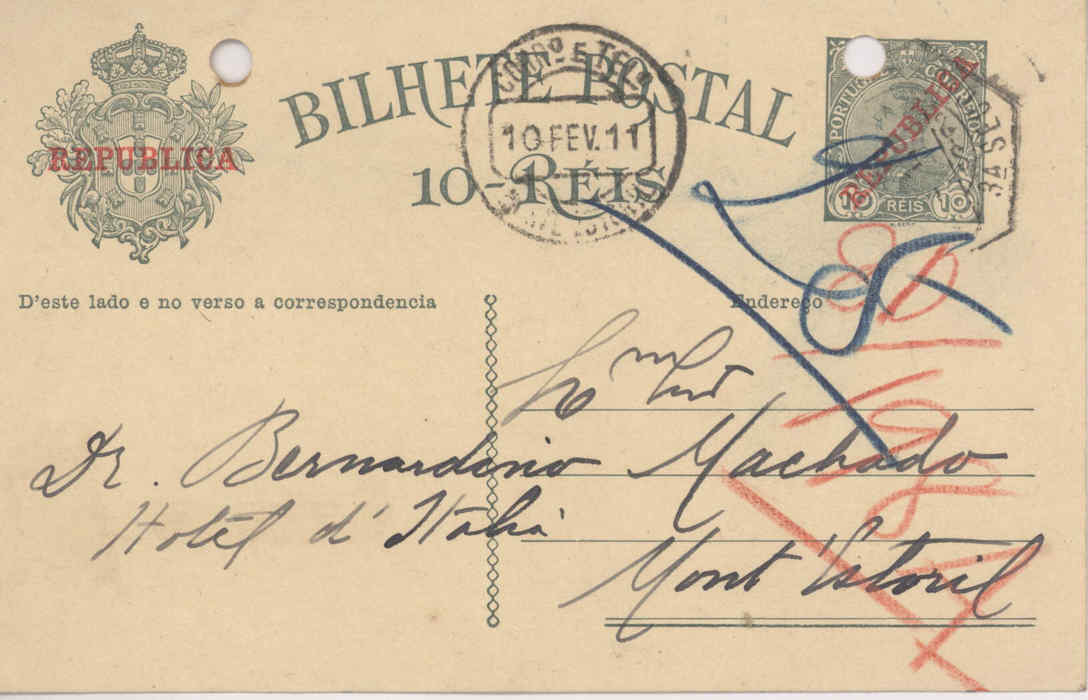 BILHETE POSTAL
10-RÉIS
REPUBLICA
CORRº E TELº
10 FEV. 11
PORTUGAL CORREIO
REPUBLICA
10 REIS 10
D'este lado e no verso a correspondencia
Endereço
Dr. Bernardino Machado
Hotel d'Italia
Mont'Estoril